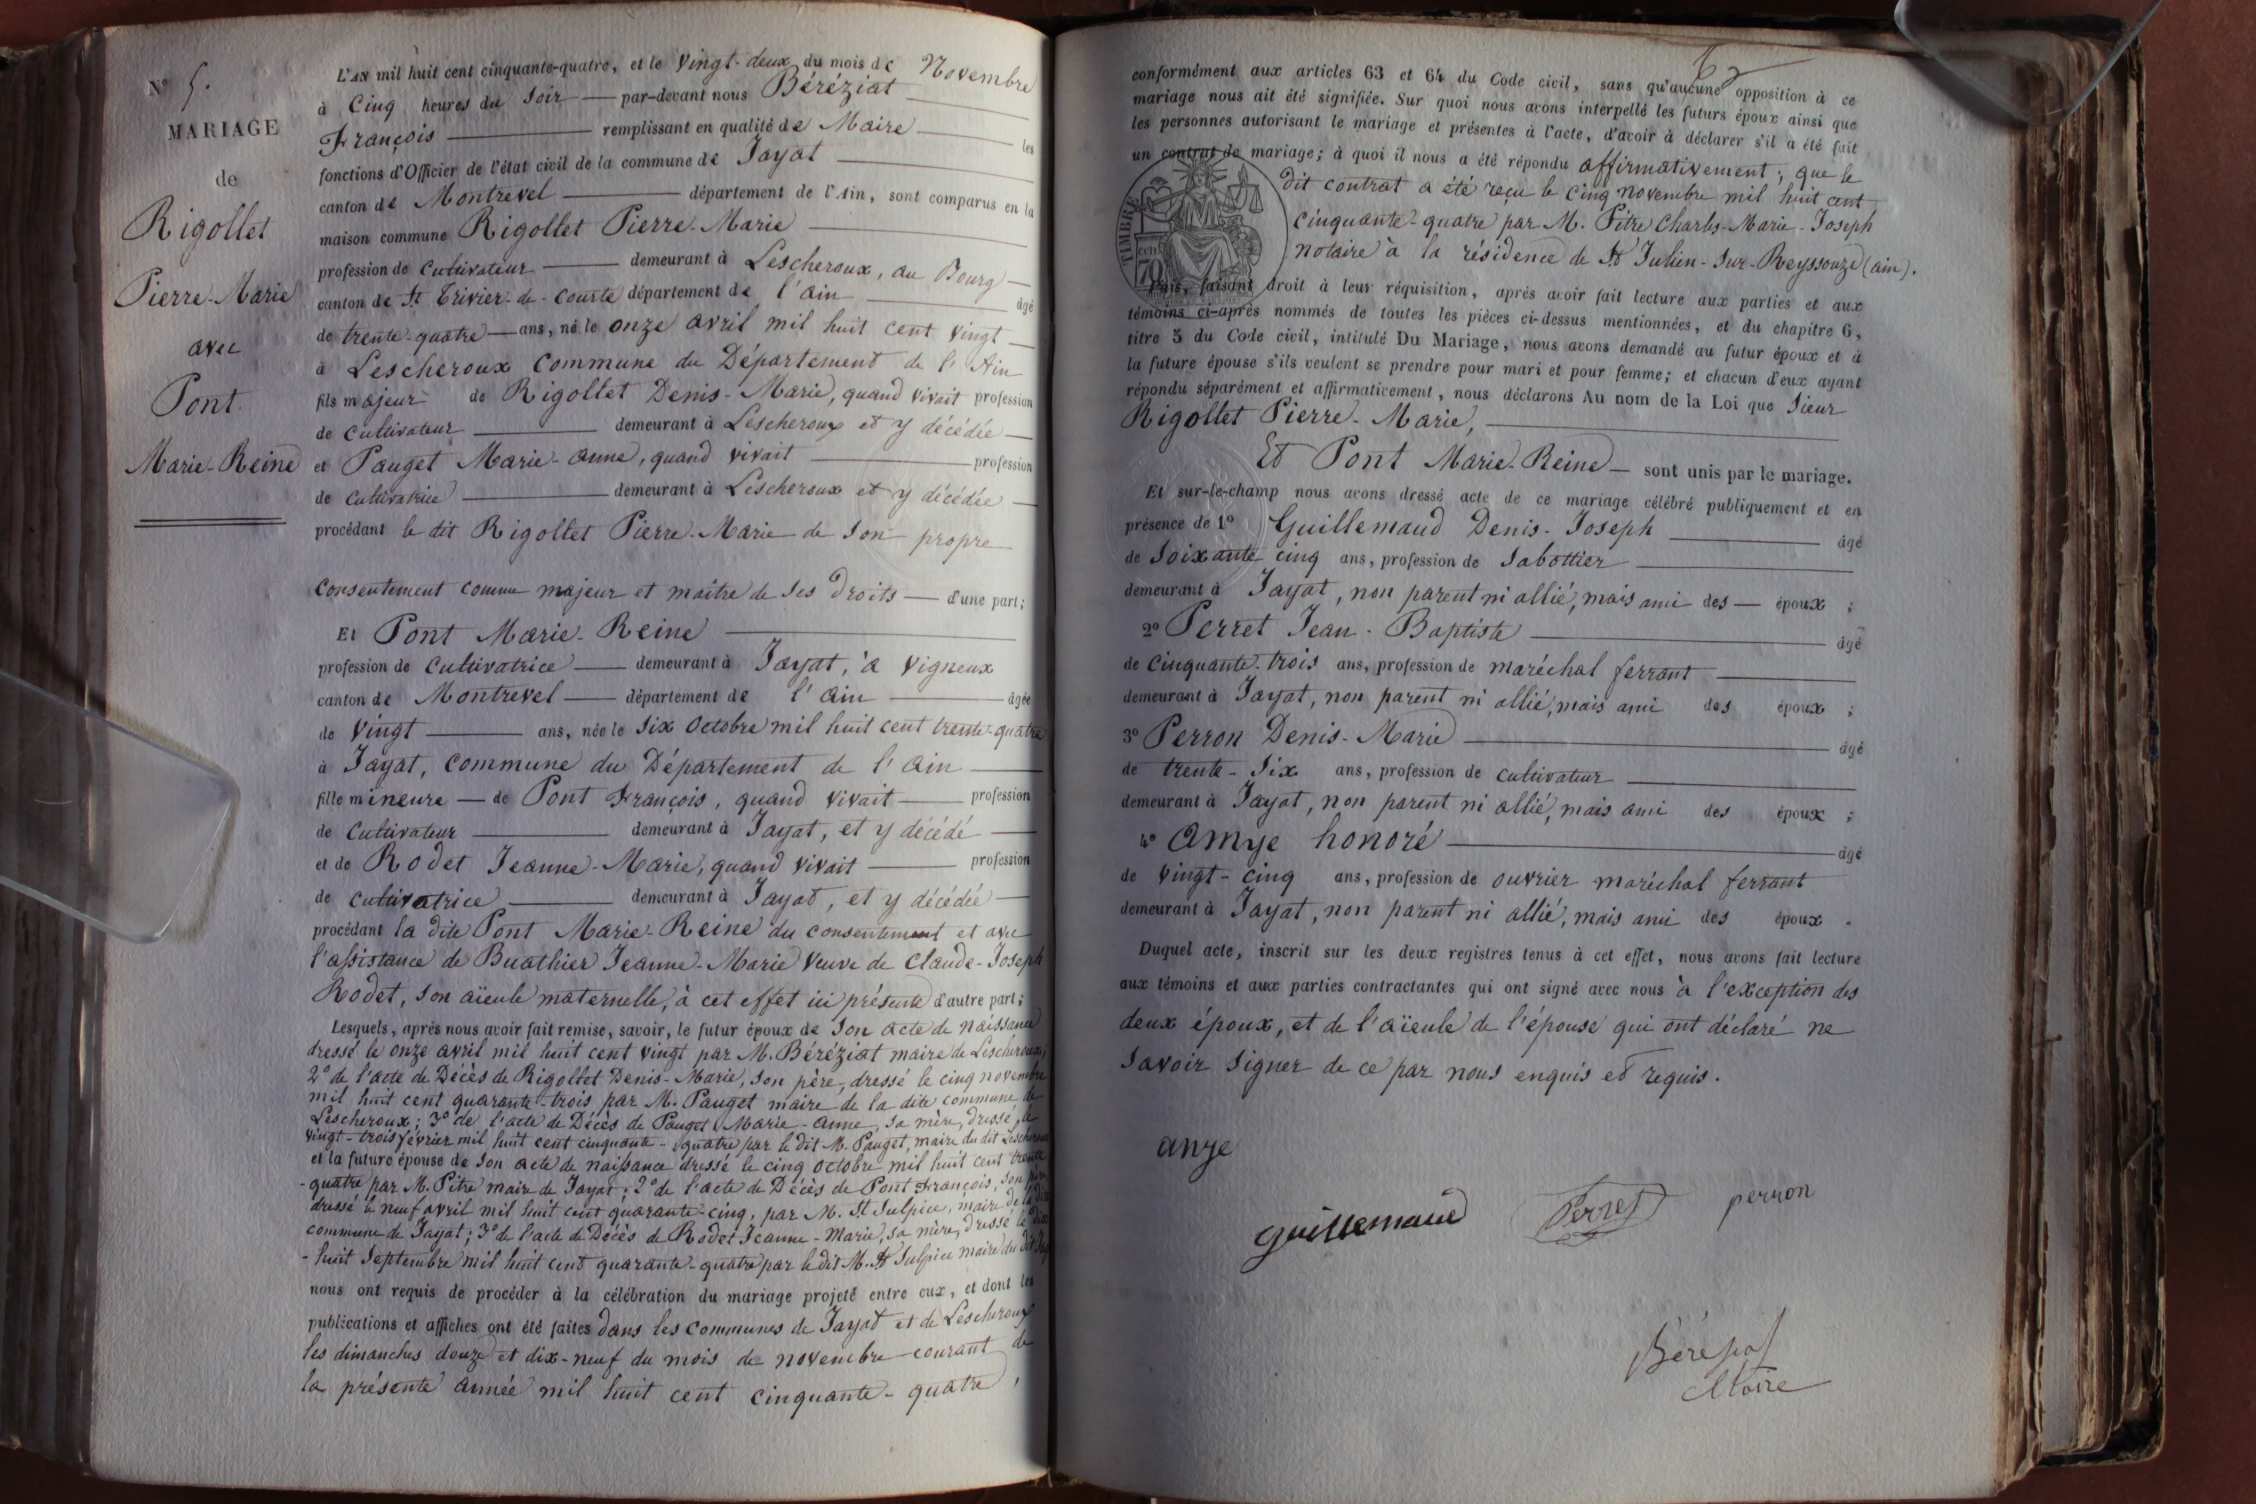 N° 5.
MARIAGE
de
Rigollet
Pierre-Marie
avec
Pont
Marie-Reine
L'AN mil huit cent cinquante-quatre, et le vingt-deux du mois de Novembre
à Cinq heures du soir par-devant nous Béréziat
François remplissant en qualité de Maire les
fonctions d'Officier de l'état civil de la commune de Jayat
canton de Montrevel département de l'Ain, sont comparus en la
maison commune Rigollet Pierre-Marie
profession de cultivateur demeurant à Lescheroux, au Bourg
canton de St Trivier-de-Courte département de l'ain âgé
de trente-quatre ans, né le onze avril mil huit cent vingt
à Lescheroux Commune du Département de l'Ain
fils majeur de Rigollet Denis-Marie, quand vivait profession
de cultivateur demeurant à Lescheroux et y décédée
et Pauget Marie-anne, quand vivait profession
de cultivatrice demeurant à Lescheroux et y décédée
procédant le dit Rigollet Pierre-Marie de son propre
consentement comme majeur et maître de ses droits d'une part;
Et Pont Marie-Reine
profession de cultivatrice demeurant à Jayat, à Vigneux
canton de Montrevel département de l'ain âgée
de vingt ans, née le six octobre mil huit cent trente-quatre
à Jayat, commune du Département de l'ain
fille mineure de Pont François, quand vivait profession
de cultivateur demeurant à Jayat, et y décédé
et de Rodet Jeanne-Marie, quand vivait profession
de cultivatrice demeurant à Jayat, et y décédée
procédant la dite Pont Marie-Reine du consentement et avec
l'assistance de Buathier Jeanne-Marie veuve de Claude-Joseph
Rodet, son aïeule maternelle, à cet effet ici présente d'autre part;
Lesquels, après nous avoir fait remise, savoir, le futur époux de son acte de naissance
dressé le onze avril mil huit cent vingt par M. Béréziat maire de Lescheroux;
2° de l'acte de Décès de Rigollet Denis-Marie, son père, dressé le cinq novembre
mil huit cent quarante-trois par M. Pauget maire de la dite commune de
Lescheroux; 3° de l'acte de Décès de Pauget Marie-anne, sa mère, dressé le
vingt-trois février mil huit cent cinquante-quatre par le dit M. Pauget, maire du dit Lescheroux
et la future épouse de son acte de naissance dressé le cinq octobre mil huit cent trente
-quatre par M. Pitre maire de Jayat; 2° de l'acte de Décès de Pont François, son père
dressé le neuf avril mil huit cent quarante-cinq, par M. St Sulpice, maire de la dite
commune de Jayat; 3° de l'acte de Décès de Rodet Jeanne-Marie, sa mère, dressé le dix
-huit septembre mil huit cent quarante-quatre par le dit M. St Sulpice maire du dit Jayat
nous ont requis de procéder à la célébration du mariage projeté entre eux, et dont les
publications et affiches ont été faites dans les communes de Jayat et de Lescheroux
les dimanches douze et dix-neuf du mois de novembre courant de
la présente année mil huit cent cinquante-quatre,
conformément aux articles 63 et 64 du Code civil, sans qu'aucune opposition à ce
mariage nous ait été signifiée. Sur quoi nous avons interpellé les futurs époux ainsi que
les personnes autorisant le mariage et présentes à l'acte, d'avoir à déclarer s'il a été fait
un contrat de mariage; à quoi il nous a été répondu affirmativement; que le
dit contrat a été reçu le cinq novembre mil huit cent
cinquante-quatre par M. Pitre Charles-Marie-Joseph
notaire à la résidence de St Julien-sur-Reyssouze (ain).
TIMBRE
70
Puis, faisant droit à leur réquisition, après avoir fait lecture aux parties et aux
témoins ci-après nommés de toutes les pièces ci-dessus mentionnées, et du chapitre 6,
titre 5 du Code civil, intitulé Du Mariage, nous avons demandé au futur époux et à
la future épouse s'ils veulent se prendre pour mari et pour femme; et chacun d'eux ayant
répondu séparément et affirmativement, nous déclarons Au nom de la Loi que sieur
Rigollet Pierre-Marie,
Et Pont Marie-Reine sont unis par le mariage.
Et sur-le-champ nous avons dressé acte de ce mariage célébré publiquement et en
présence de 1° Guillemaud Denis-Joseph âgé
de soixante cinq ans, profession de sabottier
demeurant à Jayat, non parent ni allié, mais ami des époux ;
2° Perret Jean-Baptiste âgé
de cinquante-trois ans, profession de maréchal ferrant
demeurant à Jayat, non parent ni allié, mais ami des époux ;
3° Perron Denis-Marie âgé
de trente-six ans, profession de cultivateur
demeurant à Jayat, non parent ni allié, mais ami des époux ;
4° Amye honoré âgé
de vingt-cinq ans, profession de ouvrier maréchal ferrant
demeurant à Jayat, non parent ni allié, mais ami des époux .
Duquel acte, inscrit sur les deux registres tenus à cet effet, nous avons fait lecture
aux témoins et aux parties contractantes qui ont signé avec nous à l'exception des
deux époux, et de l'aïeule de l'épouse qui ont déclaré ne
savoir signer de ce par nous enquis et requis.
amye
guillemaud
Perret
perron
Béréziat
Maire